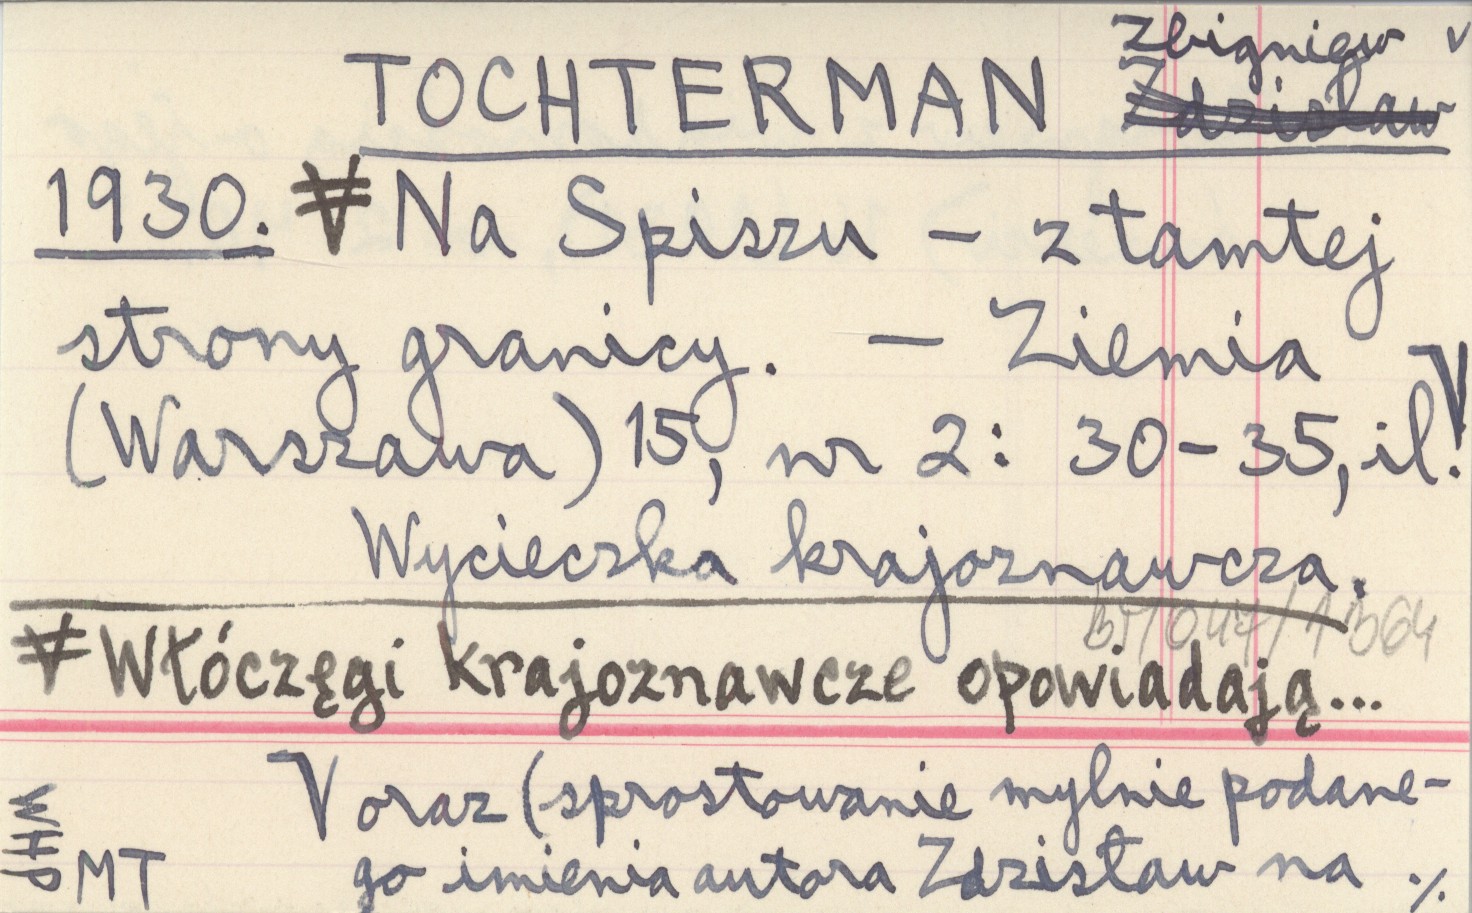 Zbigniew v
TOCHTERMAN Zdzisław
1930. Na Spiszu - z tamtej
strony granicy. - Ziemia
(Warszawa) 15, nr 2: 30-35, il. V
Wycieczka krajoznawcza.
Włóczęgi krajoznawcze opowiadają...
V oraz (sprostowanie mylnie podane-
go imienia autora Zdzisław na ./.
WHP
MT